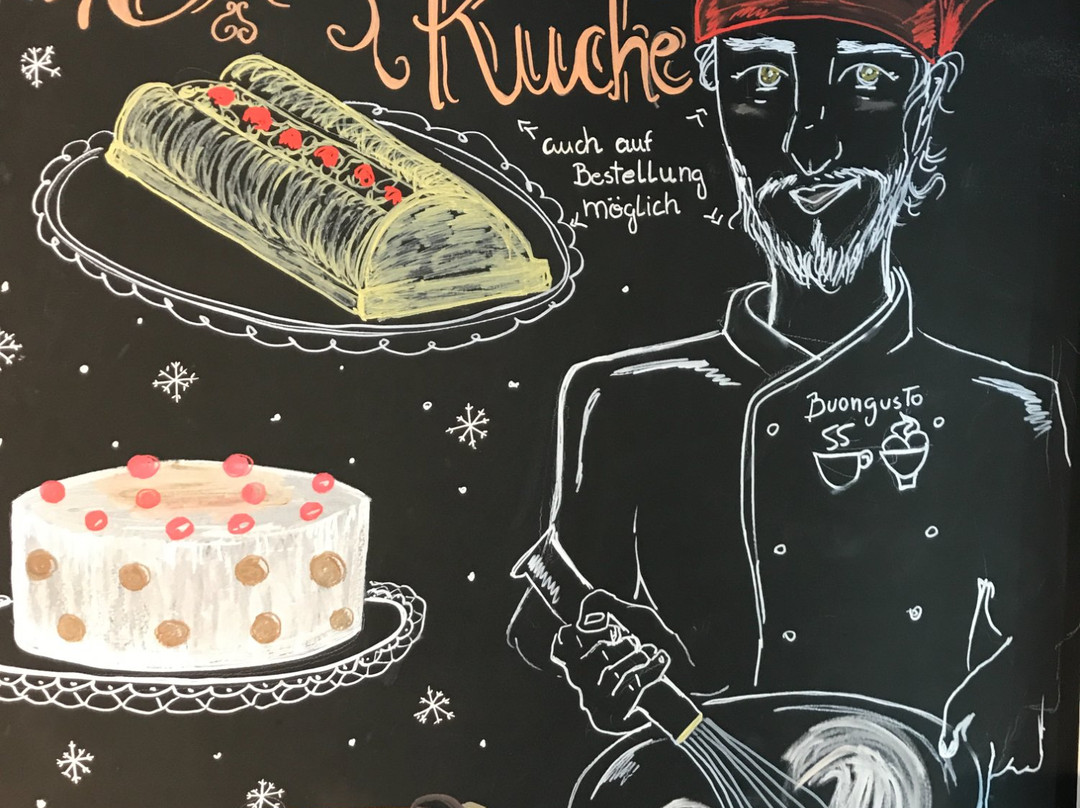 Kuche
auch auf
Bestellung
möglich
Buongusto